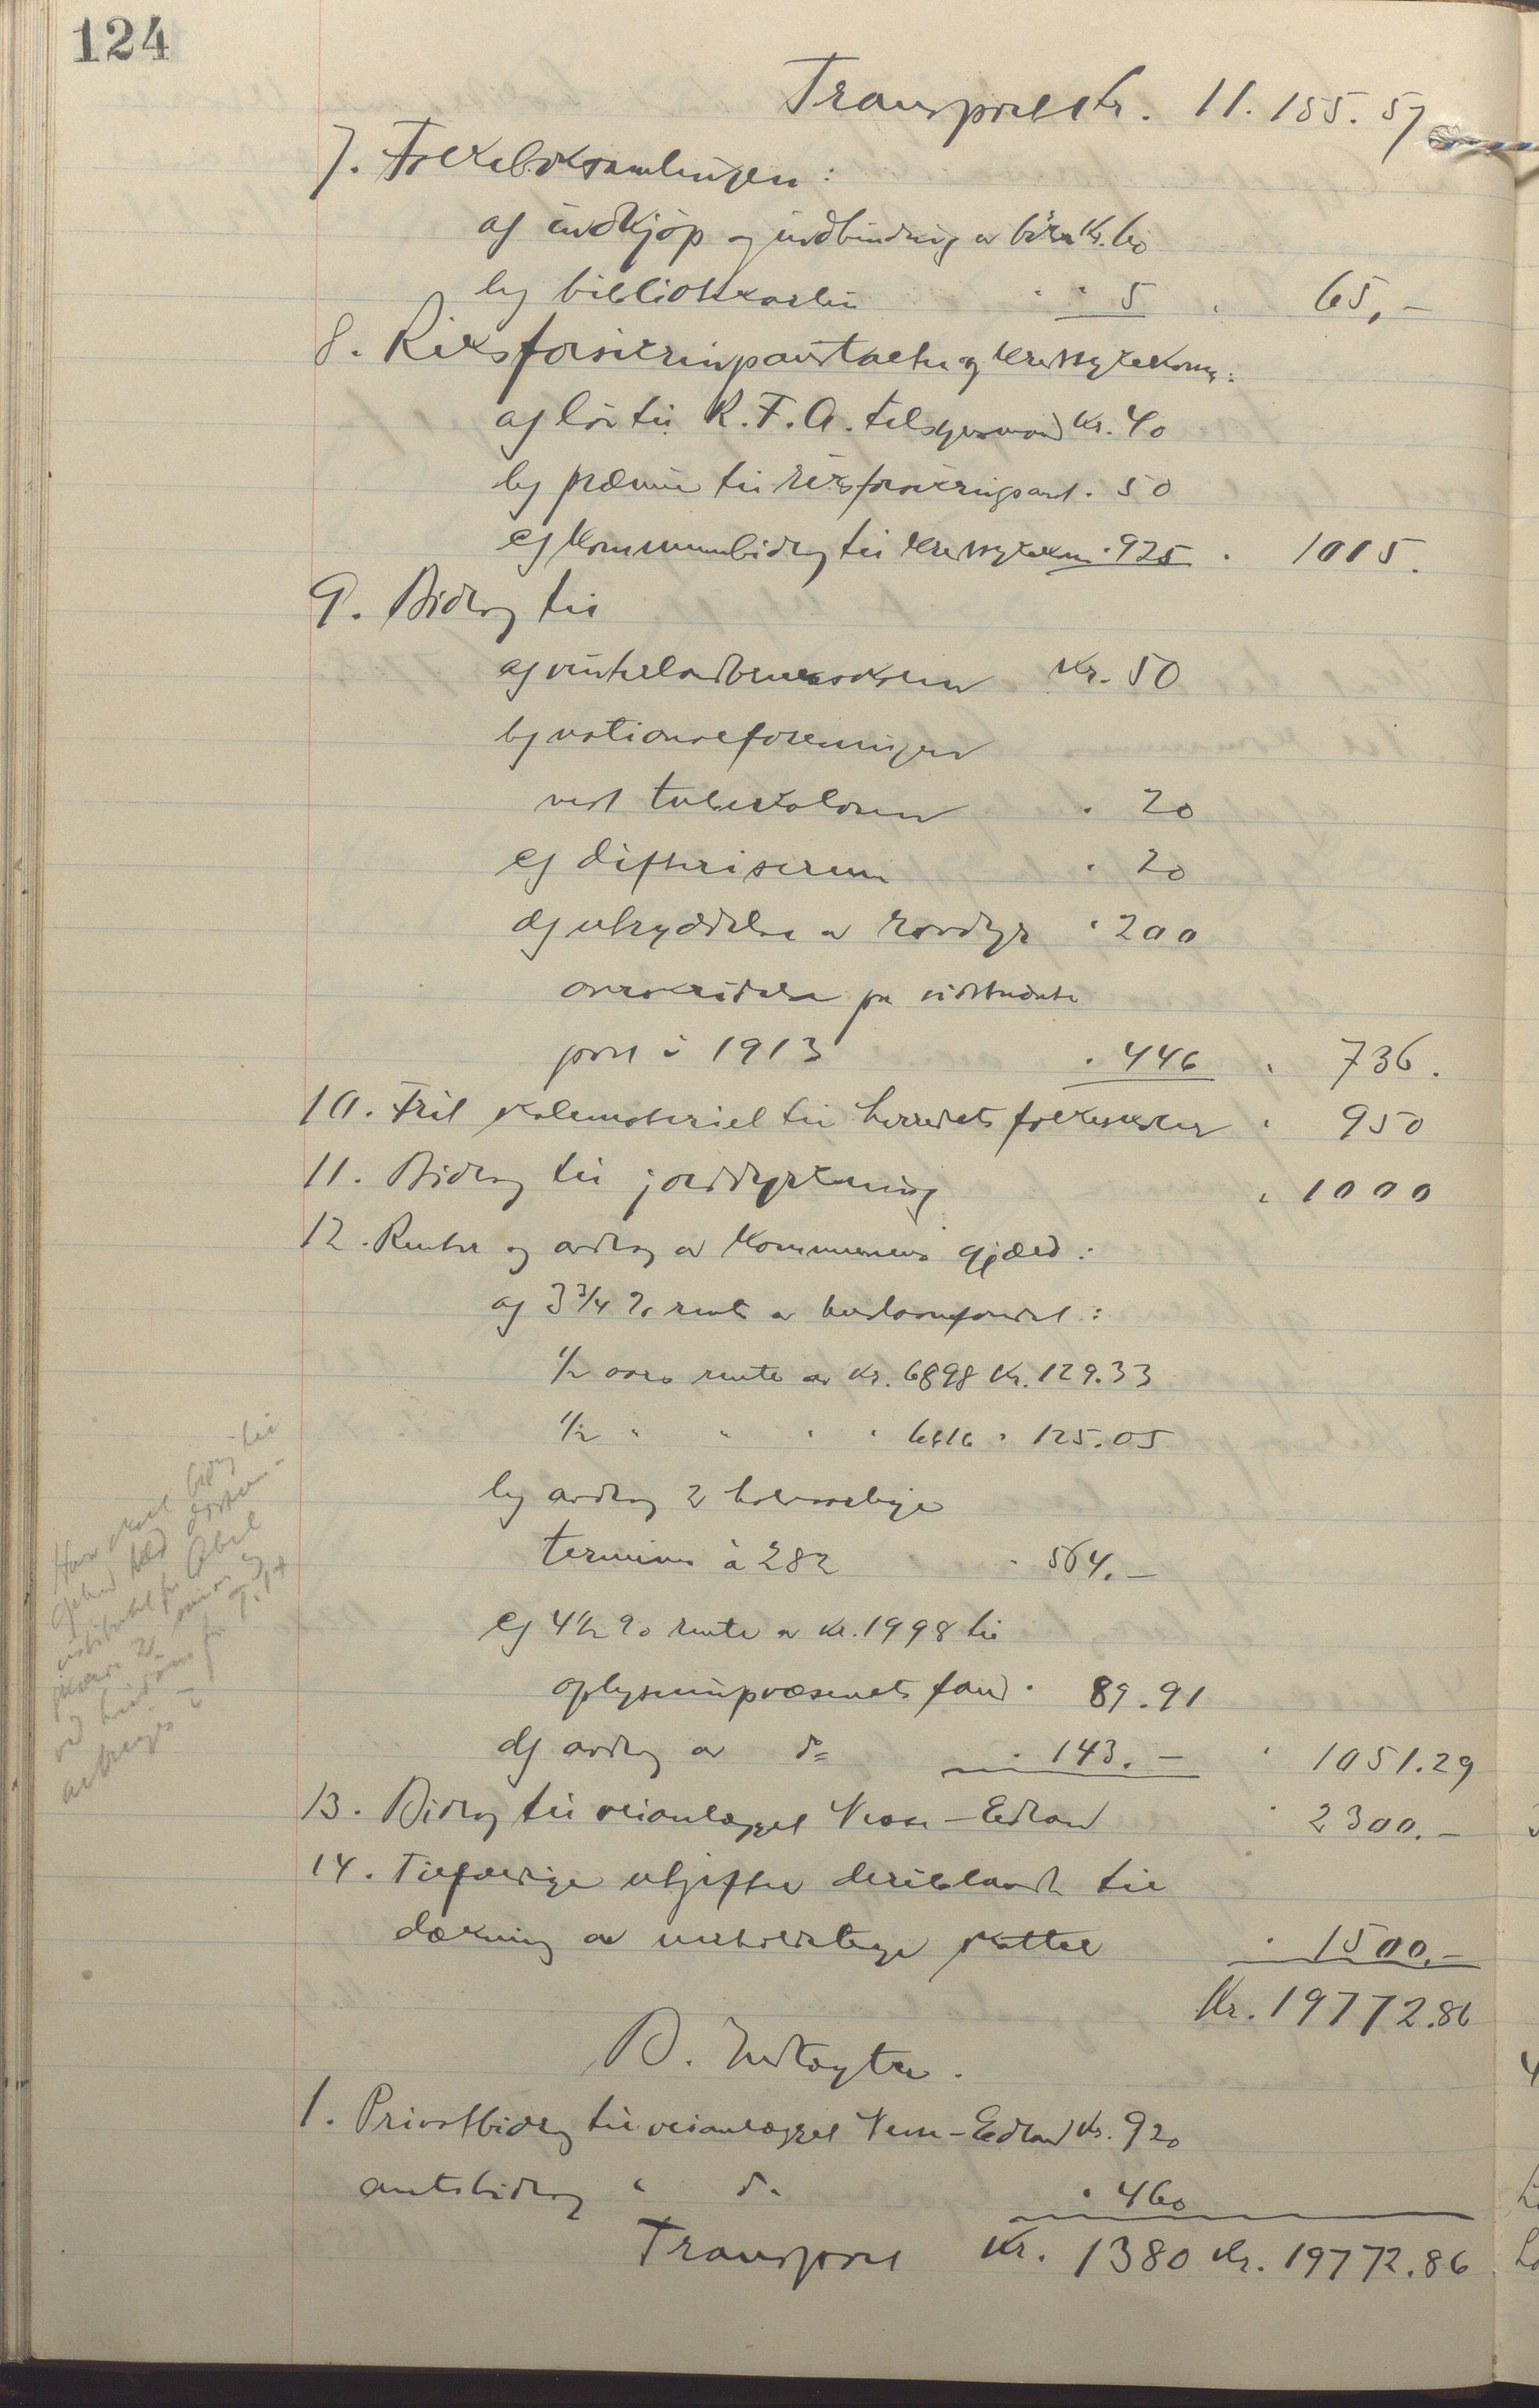 124
Transport kr. 11.155.57
7. Folkeboksamlingen:
a) indkjøp og indbinding av bøker kr. 60
b) bibliotekaren " " 5 " 65,-
8. Riksforsikringsanstalten og kredssykekas.:
a) løn til R.F.A. tilsynsmand kr. 40
b) præmie til riksforsikringsanst. " 50
c) kommunebidrag til kredssykekas. " 925 " 1015.
9. Bidrag til
a) vinterlandbruksskolen kr. 50
b) nationalforeningen
mot tuberkulosen " 20
c) difteriserum " 20
d) utryddelse av rovdyr " 200
overskridelse paa vedkommende
post i 1913 " 446 " 736.
10. Frit skolemateriel til herredets folkeskoler " 950
11. Bidrag til jorddyrkning " 1000
12. Renter og avdrag av kommunens gjæld:
a) 3 3/4 % rente av husbaanfondet:
1/2 aars rente av kr. 6898 kr. 129.33
1/2 " " " " 6616 " 125.05
b) avdrag 2 halvaarlige
terminer à 282 " 564.-
c) 4 1/2 % rente av kr. 1998 til
oplysningsvæsenets fond " 89.91
d) avdrag av do " 143.- " 1051.29
13. Bidrag til veianlægget Nese-Edland " 2300.-
14. Tilfældige utgifter deriblandt til
dækning av uerholdelige skatter " 1500.-
Kr. 19772.86
B. Indtægter.
1. Privatbidrag til veianlægget Nese-Edland kr. 920
amtsbidrag " do " 460
Transport kr. 1380 kr. 19772.86